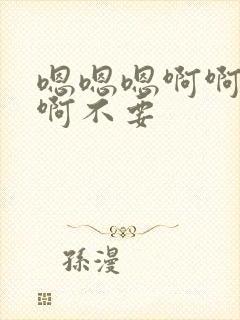 嗯嗯嗯啊啊
啊不要
孫漫